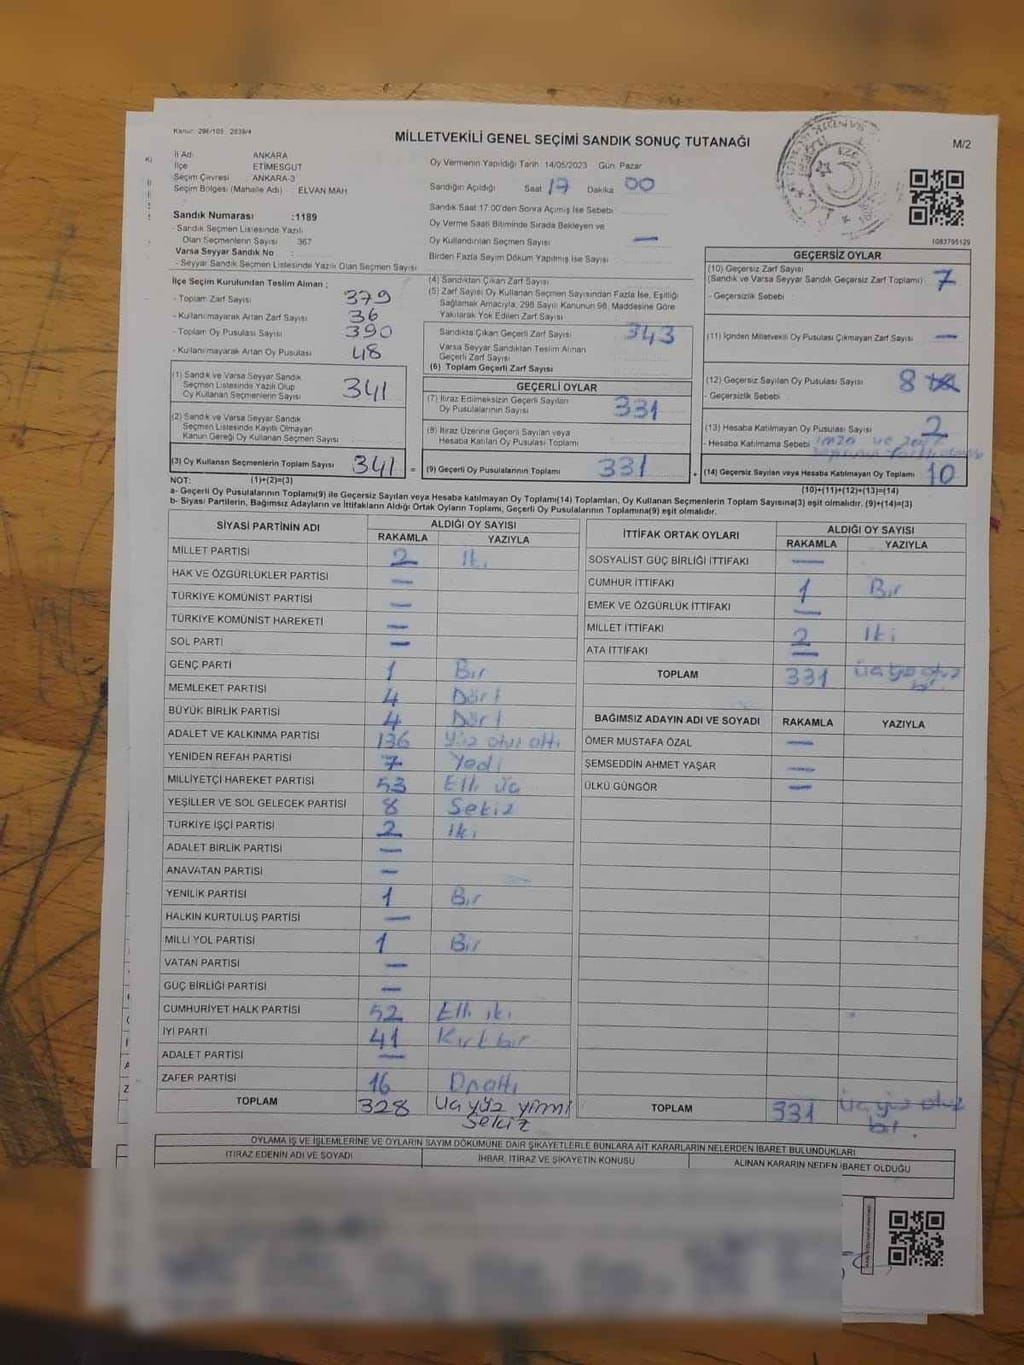 Kanun: 298/105, 2839/4
MİLLETVEKİLİ GENEL SEÇİMİ SANDIK SONUÇ TUTANAĞI
M/2
İl Adı ANKARA
İlçe ETİMESGUT
Seçim Çevresi ANKARA-3
Seçim Bölgesi (Mahalle Adı) ELVAN MAH
Sandık Numarası :1189
- Sandık Seçmen Listesinde Yazılı
Olan Seçmenlerin Sayısı 367
Varsa Seyyar Sandık No
- Seyyar Sandık Seçmen Listesinde Yazılı Olan Seçmen Sayısı
İlçe Seçim Kurulundan Teslim Alınan ;
- Toplam Zarf Sayısı 379
- Kullanılmayarak Artan Zarf Sayısı 36
- Toplam Oy Pusulası Sayısı 390
- Kullanılmayarak Artan Oy Pusulası 48
(1) Sandık ve Varsa Seyyar Sandık
Seçmen Listesinde Yazılı Olup
Oy Kullanan Seçmenlerin Sayısı 341
(2) Sandık ve Varsa Seyyar Sandık
Seçmen Listesinde Kayıtlı Olmayan
Kanun Gereği Oy Kullanan Seçmen Sayısı
(3) Oy Kullanan Seçmenlerin Toplam Sayısı 341 =
Oy Vermenin Yapıldığı Tarih 14/05/2023 Gün: Pazar
Sandığın Açıldığı Saat 17 Dakika 00
Sandık Saat 17.00'den Sonra Açılmış İse Sebebi
Oy Verme Saati Bitiminde Sırada Bekleyen ve
Oy Kullandırılan Seçmen Sayısı —
Birden Fazla Sayım Döküm Yapılmış İse Sayısı
(4) Sandıktan Çıkan Zarf Sayısı
(5) Zarf Sayısı Oy Kullanan Seçmen Sayısından Fazla İse, Eşitliği
Sağlamak Amacıyla; 298 Sayılı Kanunun 98. Maddesine Göre
Yakılarak Yok Edilen Zarf Sayısı
Sandıkta Çıkan Geçerli Zarf Sayısı 343
Varsa Seyyar Sandıktan Teslim Alınan
Geçerli Zarf Sayısı
(6) Toplam Geçerli Zarf Sayısı
GEÇERLİ OYLAR
(7) İtiraz Edilmeksizin Geçerli Sayılan
Oy Pusulalarının Sayısı 331
(8) İtiraz Üzerine Geçerli Sayılan veya
Hesaba Katılan Oy Pusulaları Toplamı
(9) Geçerli Oy Pusulalarının Toplamı 331 +
1083795129
GEÇERSİZ OYLAR
(10) Geçersiz Zarf Sayısı
(Sandık ve Varsa Seyyar Sandık Geçersiz Zarf Toplamı) 7
- Geçersizlik Sebebi
(11) İçinden Milletvekili Oy Pusulası Çıkmayan Zarf Sayısı —
(12) Geçersiz Sayılan Oy Pusulası Sayısı 8
- Geçersizlik Sebebi
(13) Hesaba Katılmayan Oy Pusulası Sayısı 2
- Hesaba Katılmama Sebebi imza ve zarf
(14) Geçersiz Sayılan veya Hesaba Katılmayan Oy Toplamı 10
NOT: (1)+(2)=(3) (10)+(11)+(12)+(13)=(14)
a- Geçerli Oy Pusulalarının Toplamı(9) ile Geçersiz Sayılan veya Hesaba katılmayan Oy Toplamı(14) Toplamları, Oy Kullanan Seçmenlerin Toplam Sayısına(3) eşit olmalıdır. (9)+(14)=(3)
b- Siyasi Partilerin, Bağımsız Adayların ve İttifakların Aldığı Ortak Oyların Toplamı, Geçerli Oy Pusulalarının Toplamına(9) eşit olmalıdır.
SİYASİ PARTİNİN ADI ALDIĞI OY SAYISI
RAKAMLA YAZIYLA
MİLLET PARTİSİ 2 İki
HAK VE ÖZGÜRLÜKLER PARTİSİ —
TÜRKİYE KOMÜNİST PARTİSİ —
TÜRKİYE KOMÜNİST HAREKETİ —
SOL PARTİ —
GENÇ PARTİ 1 Bir
MEMLEKET PARTİSİ 4 Dört
BÜYÜK BİRLİK PARTİSİ 4 Dört
ADALET VE KALKINMA PARTİSİ 136 Yüz otuz altı
YENİDEN REFAH PARTİSİ 7 Yedi
MİLLİYETÇİ HAREKET PARTİSİ 53 Elli üç
YEŞİLLER VE SOL GELECEK PARTİSİ 8 Sekiz
TÜRKİYE İŞÇİ PARTİSİ 2 İki
ADALET BİRLİK PARTİSİ —
ANAVATAN PARTİSİ —
YENİLİK PARTİSİ 1 Bir
HALKIN KURTULUŞ PARTİSİ —
MİLLİ YOL PARTİSİ 1 Bir
VATAN PARTİSİ —
GÜÇ BİRLİĞİ PARTİSİ —
CUMHURİYET HALK PARTİSİ 52 Elli iki
İYİ PARTİ 41 Kırk bir
ADALET PARTİSİ —
ZAFER PARTİSİ 16 Onaltı
TOPLAM 328 Üç yüz yirmi
sekiz
İTTİFAK ORTAK OYLARI ALDIĞI OY SAYISI
RAKAMLA YAZIYLA
SOSYALİST GÜÇ BİRLİĞİ İTTİFAKI —
CUMHUR İTTİFAKI 1 Bir
EMEK VE ÖZGÜRLÜK İTTİFAKI —
MİLLET İTTİFAKI 2 İki
ATA İTTİFAKI —
TOPLAM 331 Üç yüz otuz
bir
BAĞIMSIZ ADAYIN ADI VE SOYADI RAKAMLA YAZIYLA
ÖMER MUSTAFA ÖZAL —
ŞEMSEDDİN AHMET YAŞAR —
ÜLKÜ GÜNGÖR —
TOPLAM 331 Üç yüz otuz
bir.
OYLAMA İŞ VE İŞLEMLERİNE VE OYLARIN SAYIM DÖKÜMÜNE DAİR ŞİKAYETLERLE BUNLARA AİT KARARLARIN NELERDEN İBARET BULUNDUKLARI
İTİRAZ EDENİN ADI VE SOYADI İHBAR, İTİRAZ VE ŞİKAYETİN KONUSU ALINAN KARARIN NEDEN İBARET OLDUĞU